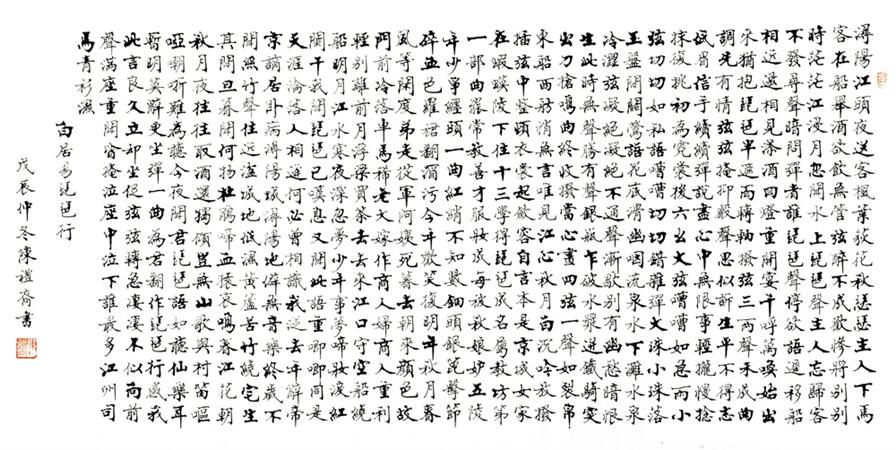 潯陽江頭夜送客楓葉荻花秋瑟瑟主人下馬
客在船舉酒欲飲無管弦醉不成歡慘將別別
時茫茫江浸月忽聞水上琵琶聲主人忘歸客
不發尋聲暗問彈者誰琵琶聲停欲語遲移船
相近邀相見添酒回燈重開宴千呼萬喚始出
來猶抱琵琶半遮面轉軸撥弦三兩聲未成曲
調先有情弦弦掩抑聲聲思似訴生平不得志
低眉信手續續彈說盡心中無限事輕攏慢撚
抹復挑初為霓裳後六幺大弦嘈嘈如急雨小
弦切切如私語嘈嘈切切錯雜彈大珠小珠落
玉盤間關鶯語花底滑幽咽流泉水下灘水泉
冷澀弦凝絕凝絕不通聲漸歇別有幽愁暗恨
生此時無聲勝有聲銀瓶乍破水漿迸鐵騎突
出刀槍鳴曲終收撥當心畫四弦一聲如裂帛
東船西舫悄無言唯見江心秋月白沉吟放撥
插弦中整頓衣裳起斂容自言本是京城女家
在蝦蟆陵下住十三學得琵琶成名屬教坊第
一部曲罷常教善才服妝成每被秋娘妒五陵
年少爭纏頭一曲紅綃不知數鈿頭銀篦擊節
碎血色羅裙翻酒污今年歡笑復明年秋月春
風等閒度弟走從軍阿姨死暮去朝來顏色故
門前冷落車馬稀老大嫁作商人婦商人重利
輕別離前月浮梁買茶去去來江口守空船繞
船明月江水寒夜深忽夢少年事夢啼妝淚紅
闌干我聞琵琶已嘆息又聞此語重唧唧同是
天涯淪落人相逢何必曾相識我從去年辭帝
京謫居卧病潯陽城潯陽地僻無音樂終歲不
聞絲竹聲住近湓城地低濕黃蘆苦竹繞宅生
其間旦暮聞何物杜鵑啼血猿哀鳴春江花朝
秋月夜往往取酒還獨傾豈無山歌與村笛嘔
啞嘲哳難為聽今夜聞君琵琶語如聽仙樂耳
暫明莫辭更坐彈一曲為君翻作琵琶行感我
此言良久立卻坐促弦弦轉急淒淒不似向前
聲滿座重聞皆掩泣座中泣下誰最多江州司
馬青衫濕
白居易琵琶行
戊辰仲冬陳禮齋書